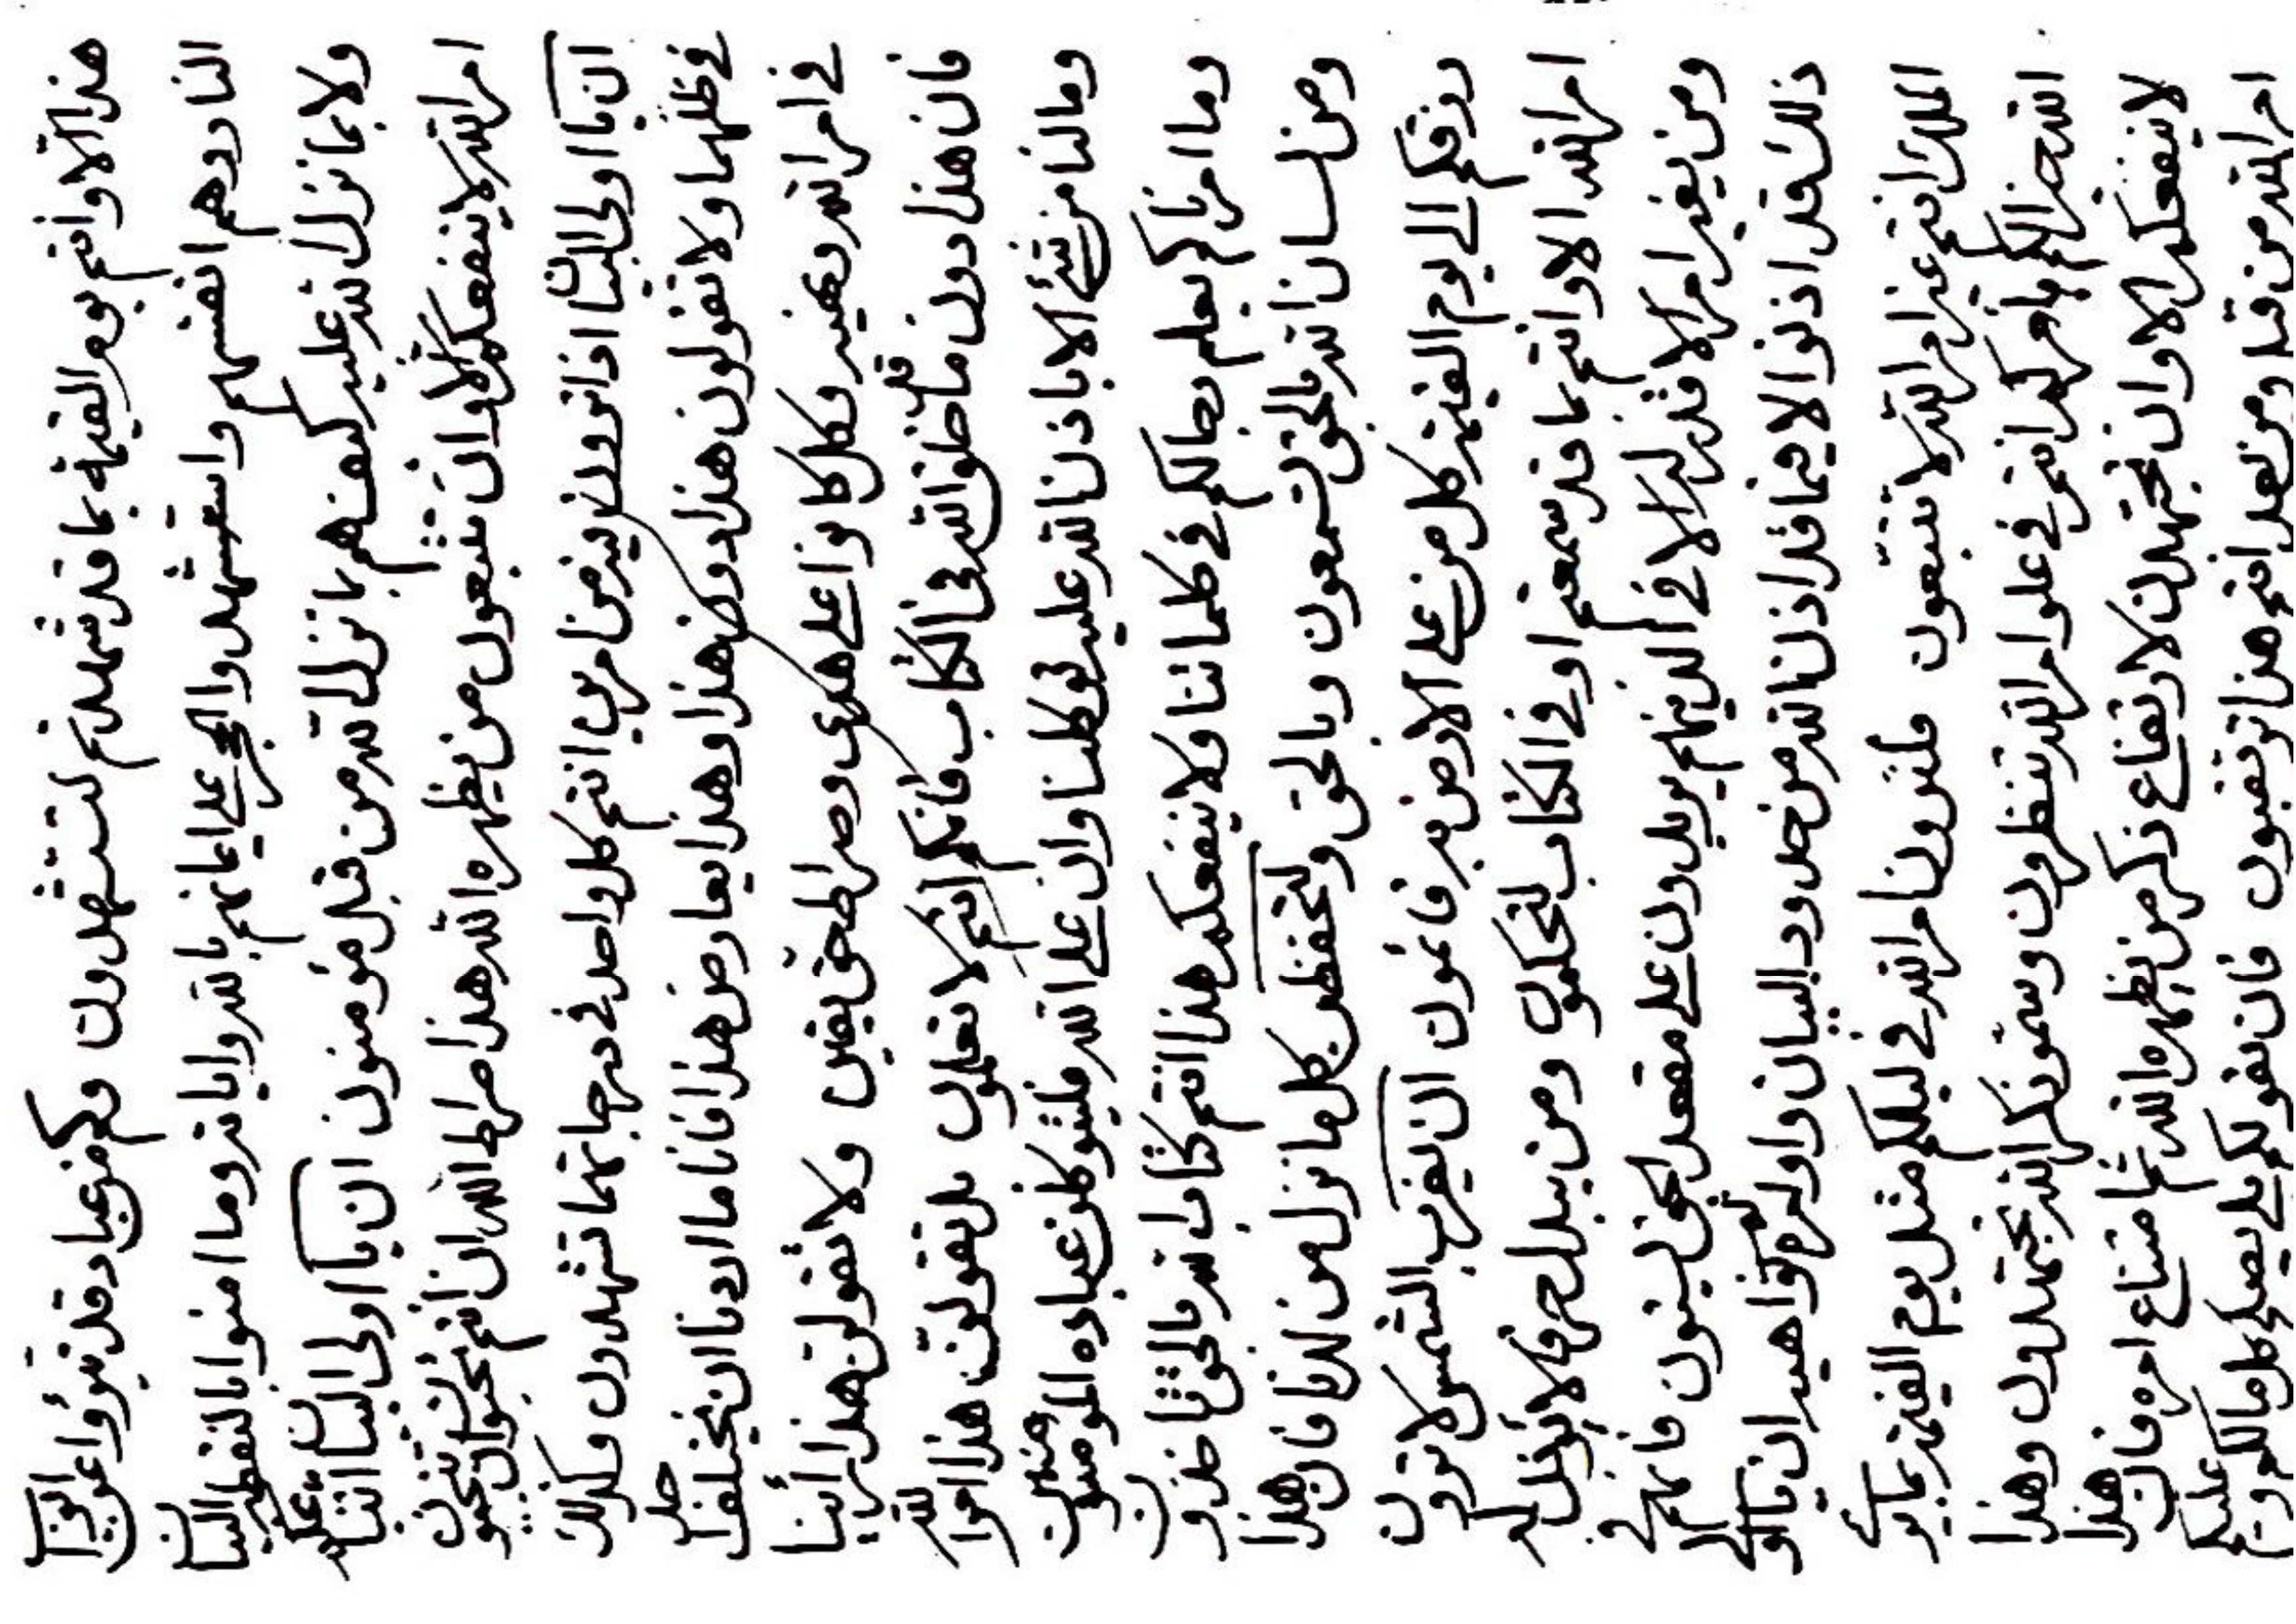 هذا الا وانتم يوم القيمة بما قد شهدتم لتستشهدون وكم من عباد قد تبرؤا عن
النار دهم انفسهم واستشهد والحجر على ايمانهم بالله واياته وما امنوا بالنقطة البيان
ولا بما نزل الله عليه كيف هم بما نزل الله من قبل مؤمنون ان يا اولى البيان انتم
امر الله لا ينفعكم الا وان تتبعون من يظهره الله هذا صراط الله ان انتم تحبون ان تنجون
ان يا اولى البيان اذا ترون نيرين من امرين انتم كل واحد في درجاتهما تشهدون وكذلك
في ظلهما ولا تقولون هذا دون هذا وهذا يعارض هذا فانا ما اردنا ان نختلف احد
في امر الله دهنيه وكل كانوا على هدى وصراط حق يقين ولا تقولن هذا راينا
فان هذا دون ما قد خلق الله في الكتاب فانكم انتم لا تعلمون بل تقولن هذا امر الله
وما لنا من شئ الا باذن الله عليه توكلنا وان على الله فليتوكلن عباده المؤمنون
وما امرناكم بعلم رجالكم في كلماتنا ولا ينفعكم هذا انتم كتاب الله بالحق تاخذون
ومن لسان الله بالحق لتسمعون وبالحق ولتحفظن كل ما نزل من لدنا فان هذا
رزقكم الى يوم القيمة كل من على الارض به قائمون ان تغرب الشمس لا ترون
امر الله الا وانتم بما قد سمعتم او في الكتاب لتحكمون ومن يبدل حرفا لا يؤخذ له
ومن يغير امر الا قدر له الا في الذينهم يريدون على مقعد الحق لينبؤن فانهم في
ذلك قد اذنوا الا فيما قد اذن الله من حدود البيان واوامره ونواهيه ان يا اولى
الملك انتم غير امر الله لا تتبعون فلتدون امر الله في ليلكم مثل يوم القيمة بما
الله جزائكم بامركم انتم في علو امر الله تنظرون وسمو ذكر الله تجتهدون وهذا
لا ينفعكم الا وان تجتهدن لارتفاع ذكر من يظهره الله ثم امتناع امره فان هذا
امر الله من قبل ومن بعد انتم هذا ترقبون فان تقولكم بلى يصعد كل مالكم عليكم